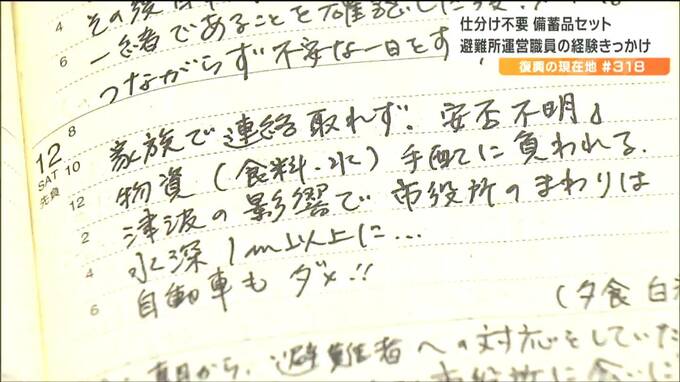 仕分け不要 備蓄品セット
避難所運営職員の経験きっかけ
復興の現在地 #318
一緒であることを確認した
つながらず不安な一日をす
12
SAT
先負
8
10
12
2
4
6
家族で連絡取れず。安否不明
物資(食料・水)手配に負われる.
津波の影響で市役所のまわりは
水深1m以上に…
自動車もダメ!!
(夕食 白
避難者への対応をしていた